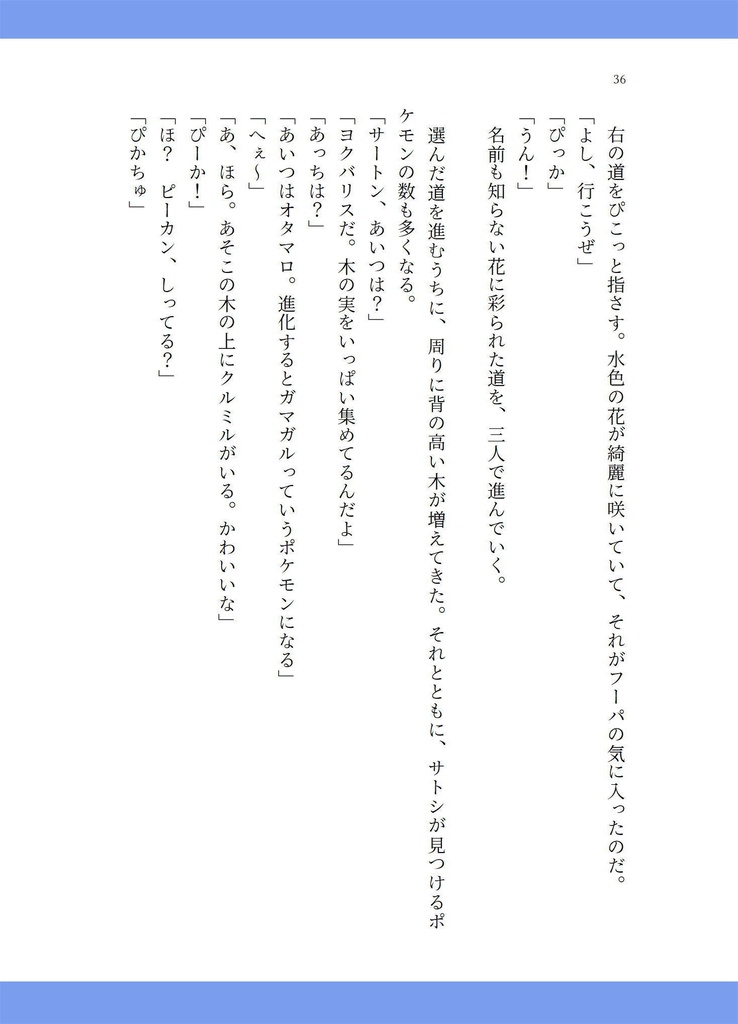 36
右の道をぴこっと指さす。水色の花が綺麗に咲いていて、それがフーパの気に入ったのだ。
「よし、行こうぜ」
「ぴっか」
「うん！」
名前も知らない花に彩られた道を、三人で進んでいく。
選んだ道を進むうちに、周りに背の高い木が増えてきた。それとともに、サトシが見つけるポ
ケモンの数も多くなる。
「サートン、あいつは？」
「ヨクバリスだ。木の実をいっぱい集めてるんだよ」
「あっちは？」
「あいつはオタマロ。進化するとガマガルっていうポケモンになる」
「へぇ〜」
「あ、ほら。あそこの木の上にクルミルがいる。かわいいな」
「ぴーか！」
「ほ？　ピーカン、しってる？」
「ぴかちゅ」